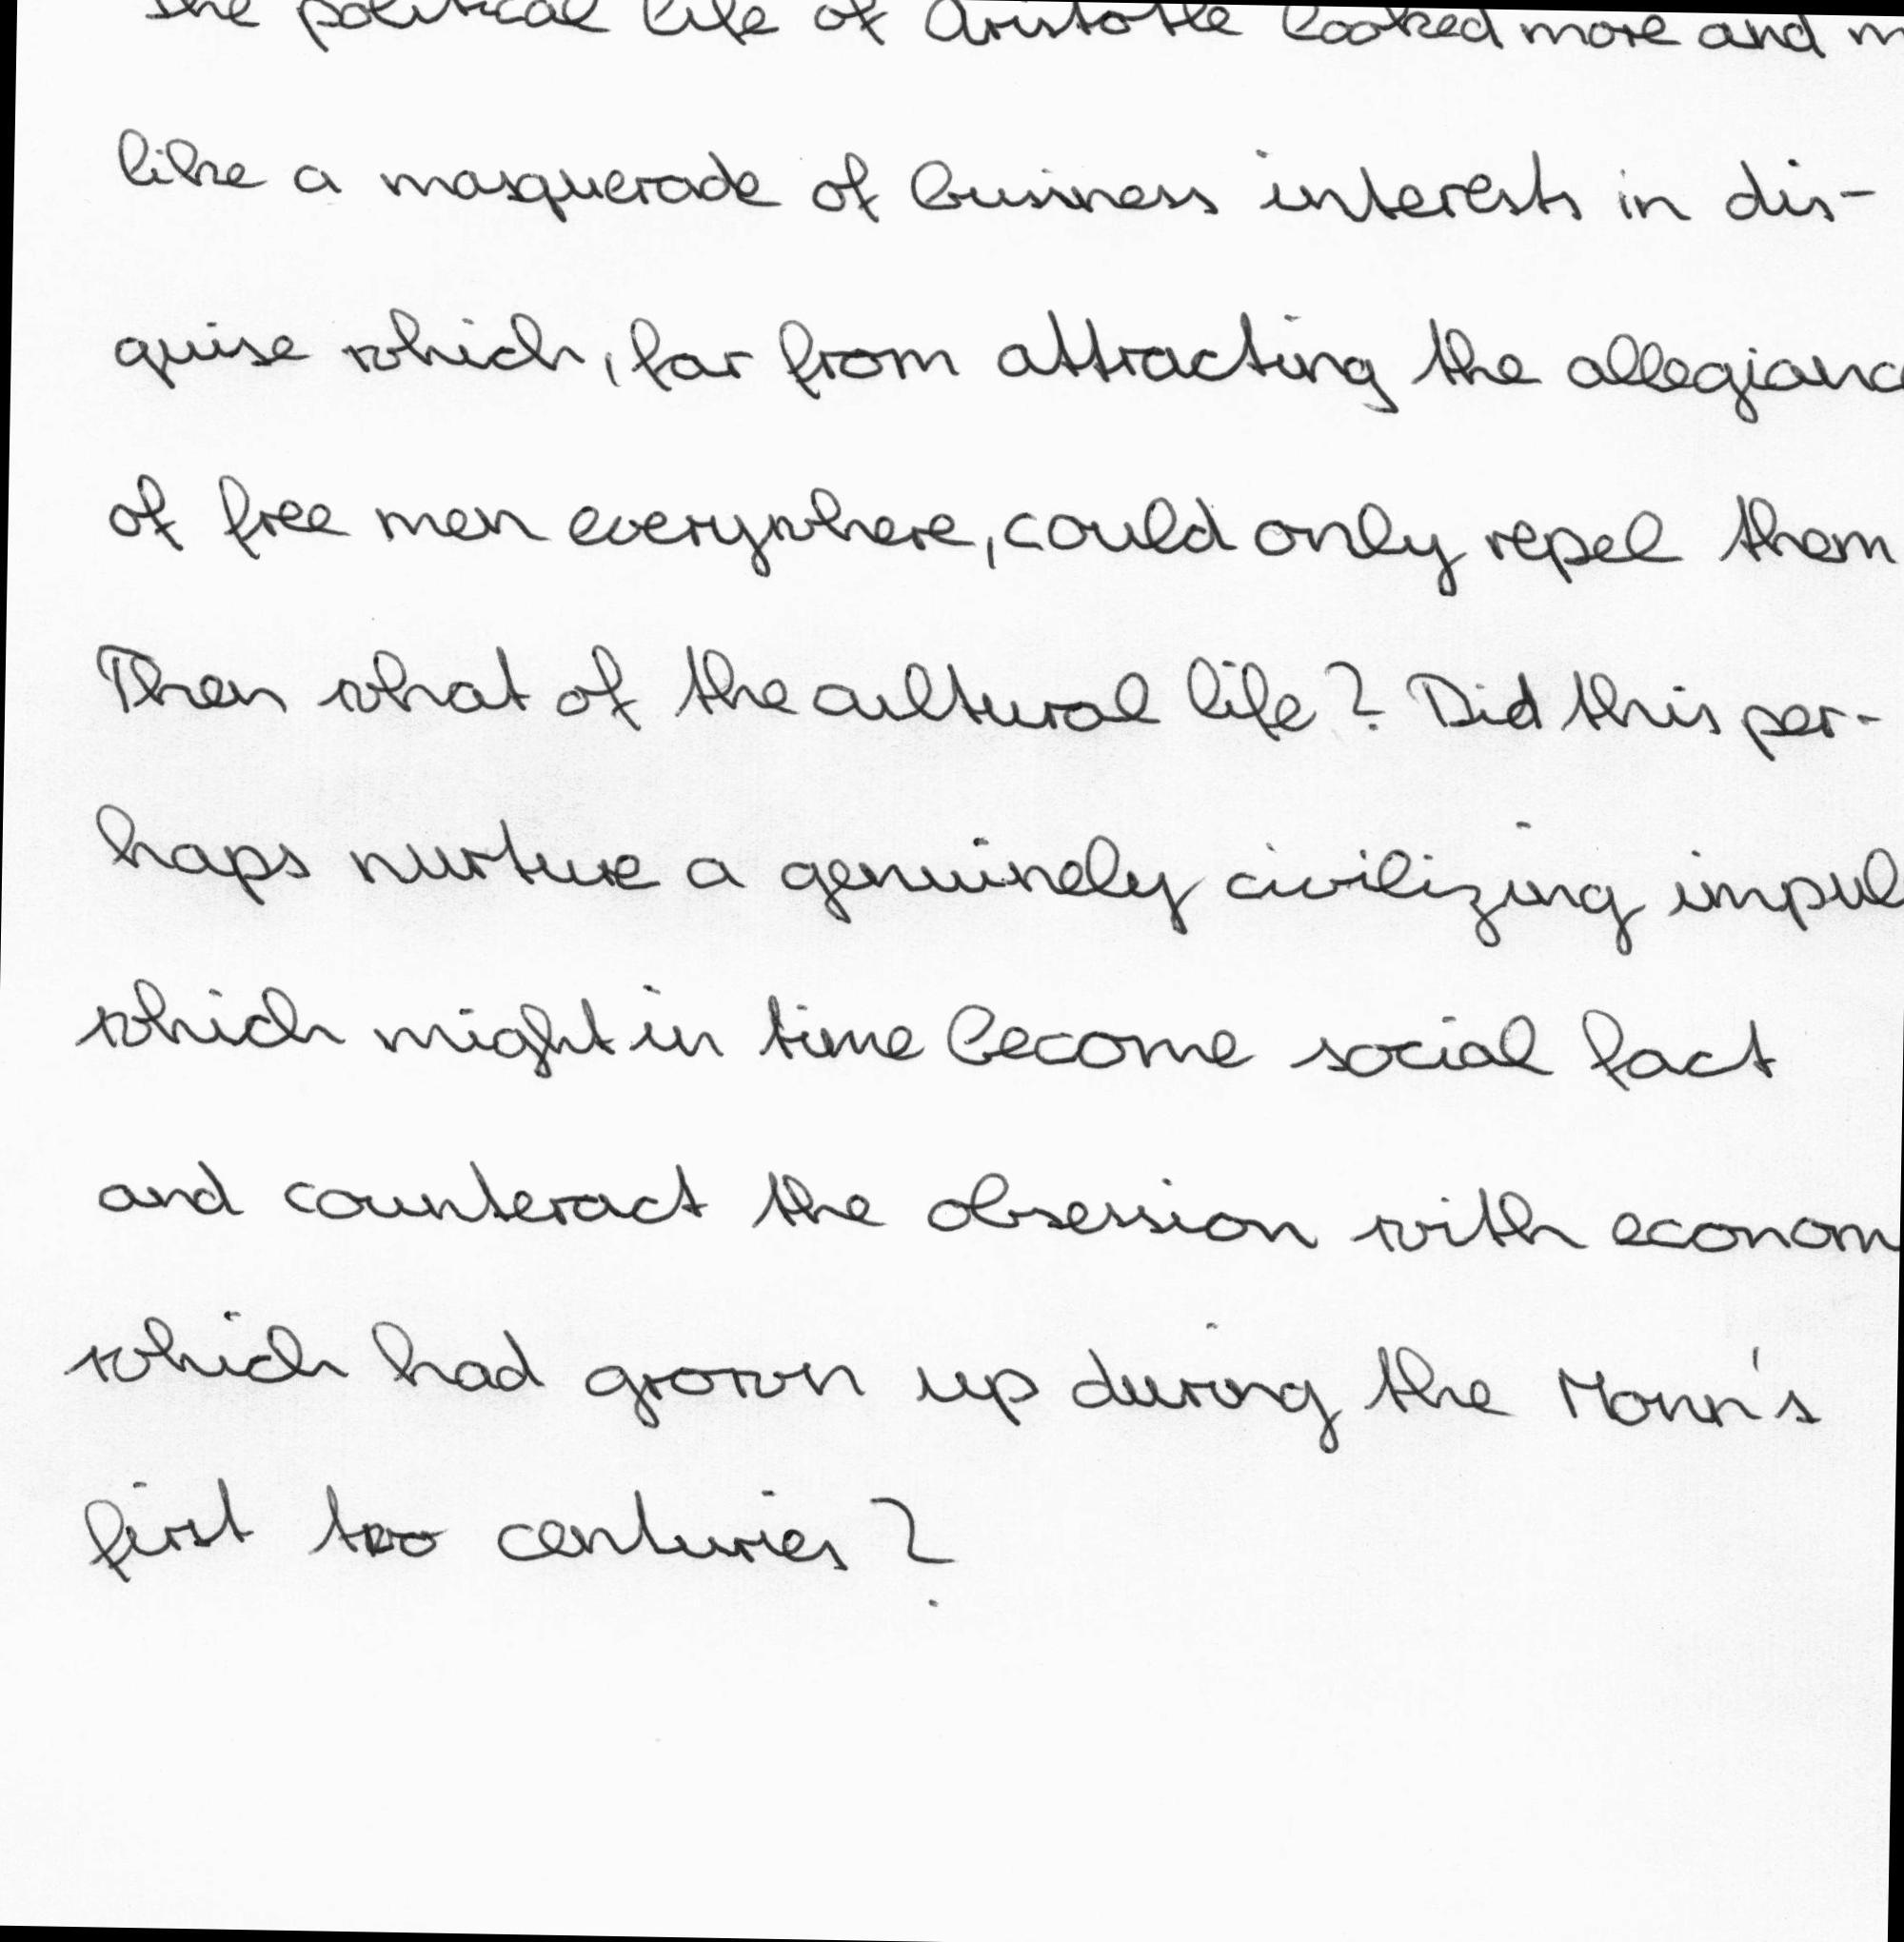 the political life of Aristotle looked more and m
like a masquerade of business interests in dis-
guise which, far from attracting the allegianc
of free men everywhere, could only repel them
Then what of the cultural life? Did this per-
haps nurture a genuinely civilizing impul
which might in time become social fact
and counteract the obsession with econom
which had grown up during the Moun's
first two centuries?